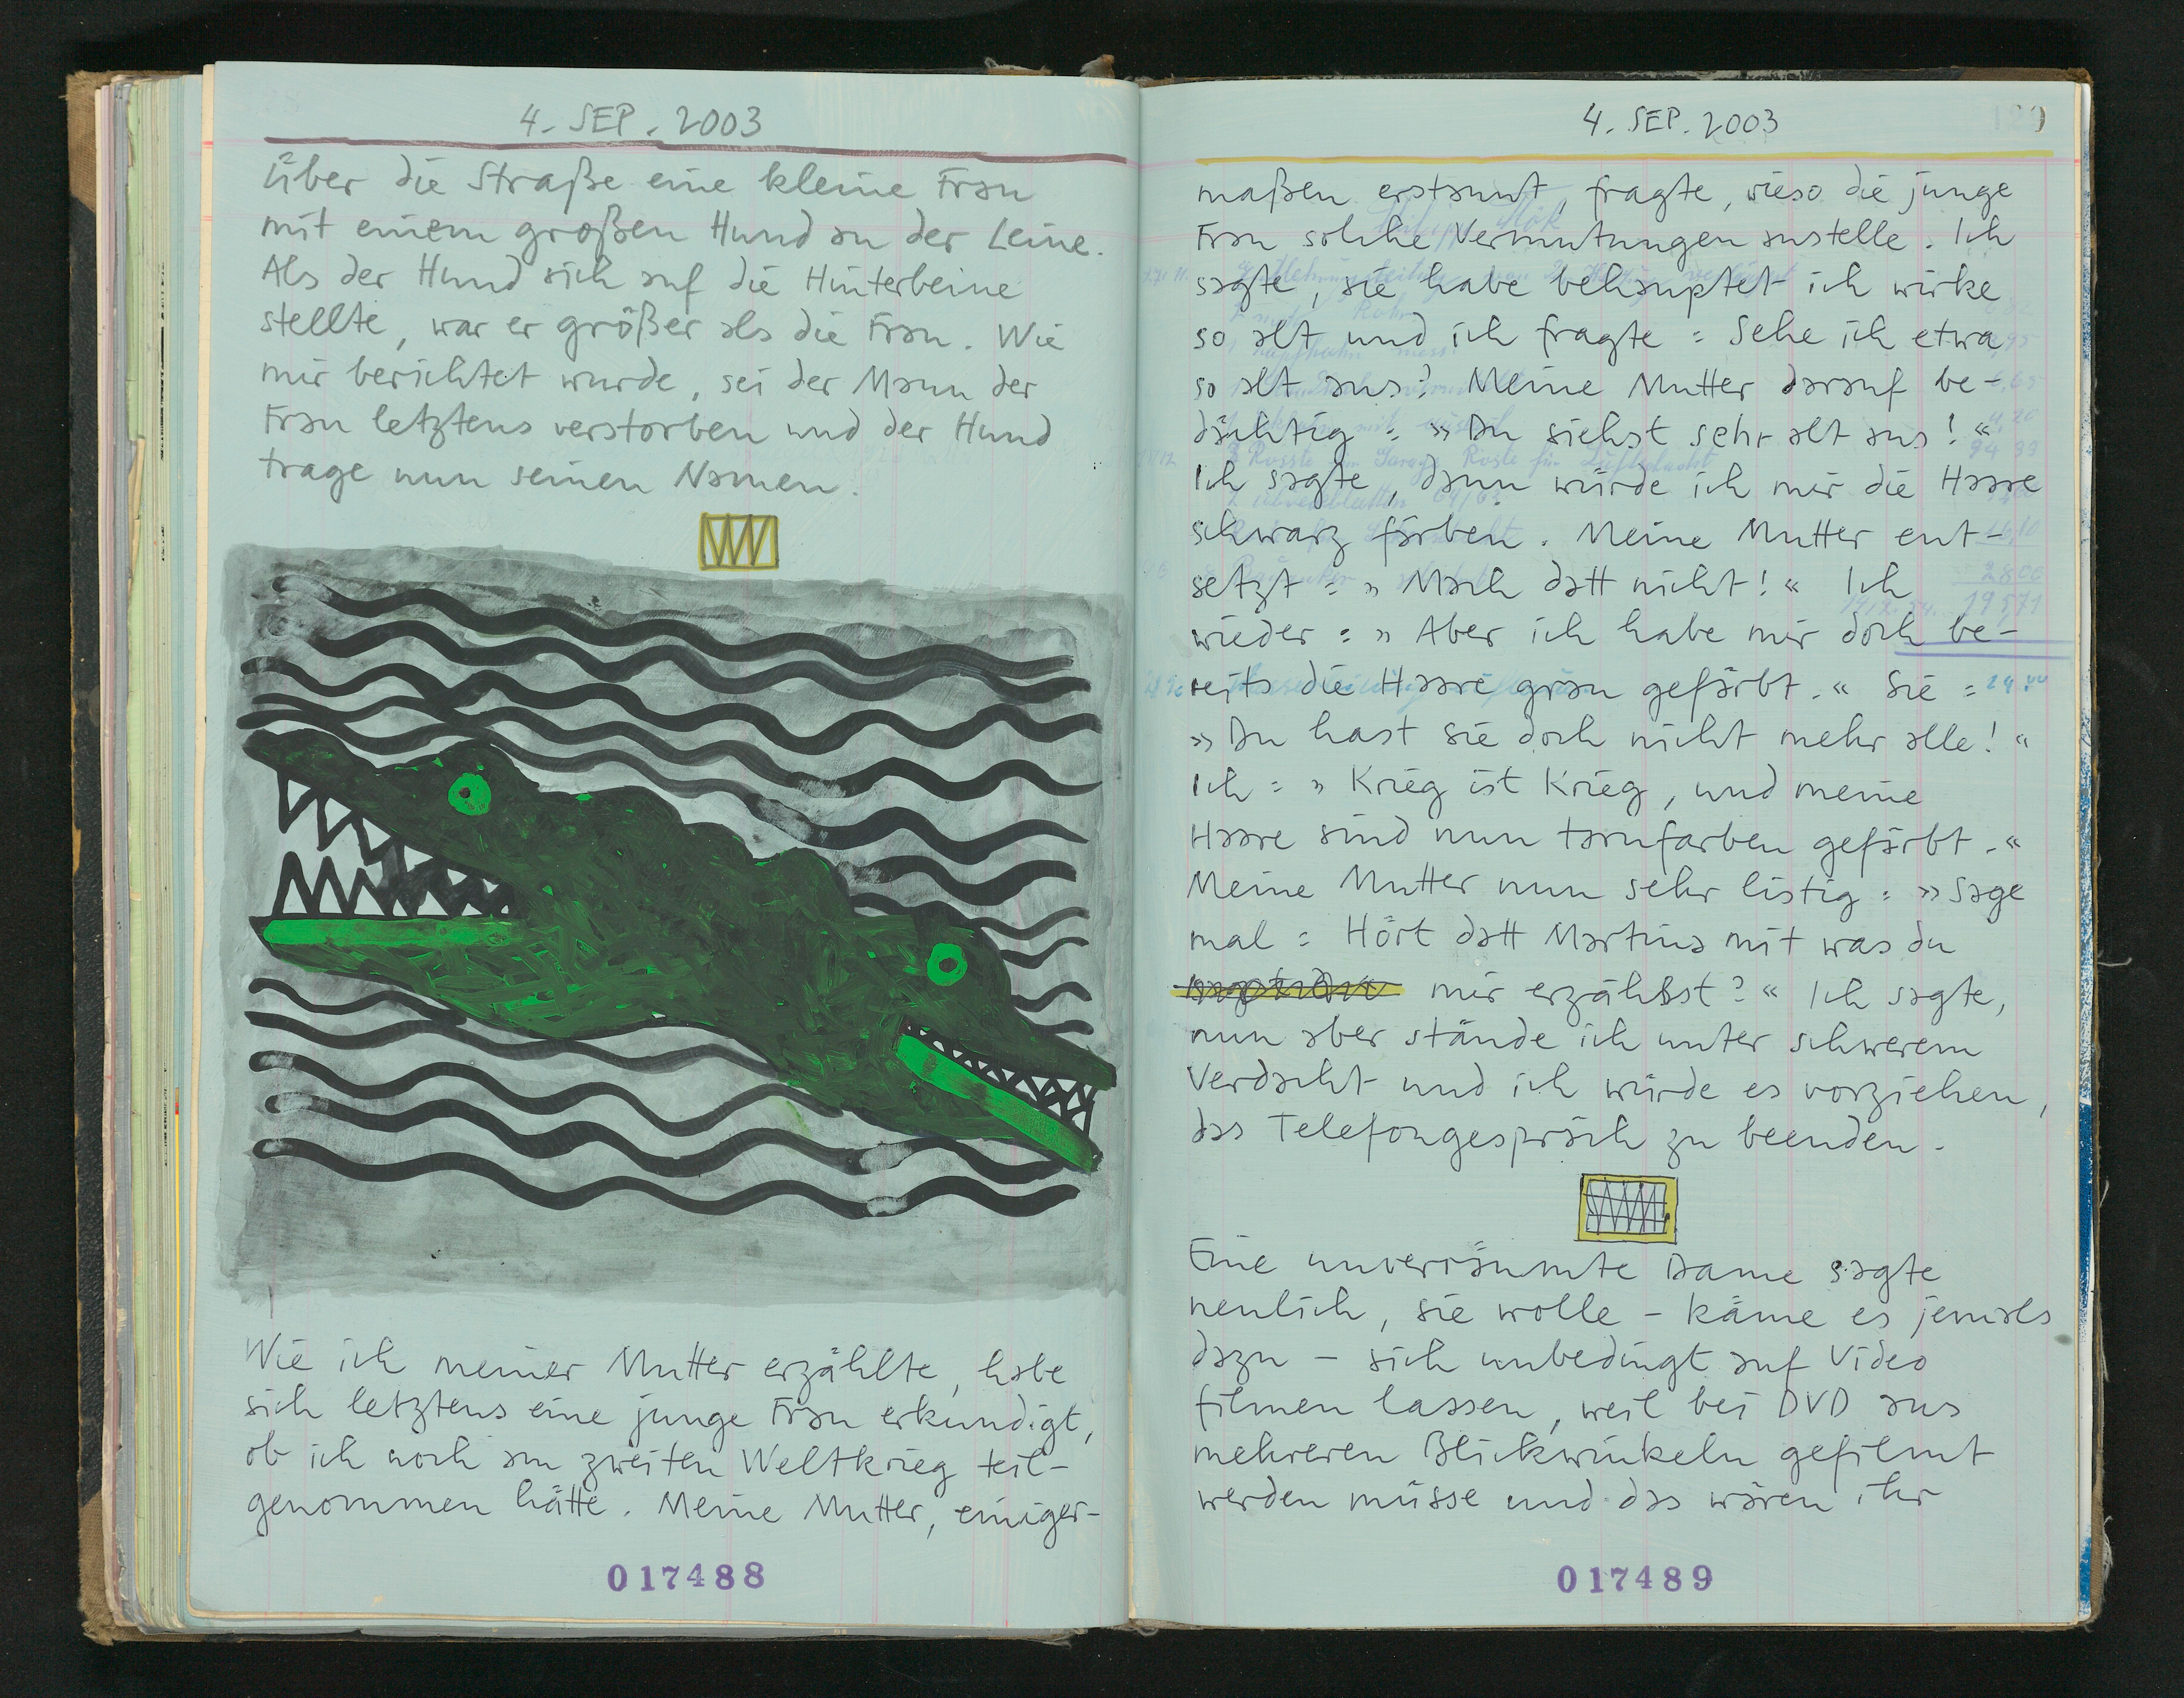 4. SEP. 2003
über die Straße eine kleine Frau
mit einem großen Hund an der Leine.
Als der Hund sich auf die Hinterbeine
stellte, war er größer als die Frau. Wie
mir berichtet wurde, sei der Mann der
Frau letztens verstorben und der Hund
trage nun seinen Namen.
Wie ich meiner Mutter erzählte, habe
sich letztens eine junge Frau erkundigt,
ob ich noch am zweiten Weltkrieg teil-
genommen hätte. Meine Mutter, einiger-
017488
4. SEP. 2003
120
maßen erstaunt, fragte, wieso die junge
Frau solche Vermutungen anstelle. Ich
sagte, sie habe behauptet ich wirke
so alt und ich fragte: Sehe ich etwa
so alt aus? Meine Mutter darauf be-
dächtig: »Du siehst sehr alt aus!«
Ich sagte, dann würde ich mir die Haare
schwarz färben. Meine Mutter ent-
setzt: »Mach datt nicht!« Ich
wieder: »Aber ich habe mir doch be-
reits die Haare grau gefärbt.« Sie:
»Du hast sie doch nicht mehr alle!«
Ich: »Krieg ist Krieg, und meine
Haare sind nun tarnfarben gefärbt.«
Meine Mutter nun sehr listig: »Sage
mal: Hört datt Martina mit was du
mir erzählst?« Ich sagte,
nun aber stände ich unter schwerem
Verdacht und ich würde es vorziehen,
das Telefongespräch zu beenden.
Eine unverräumte Dame sagte
neulich, sie wolle – käme es jemals
dazu – sich unbedingt auf Video
filmen lassen, weil bei DVD aus
mehreren Blickwinkeln gefilmt
werden müsse und das wären ihr
017489